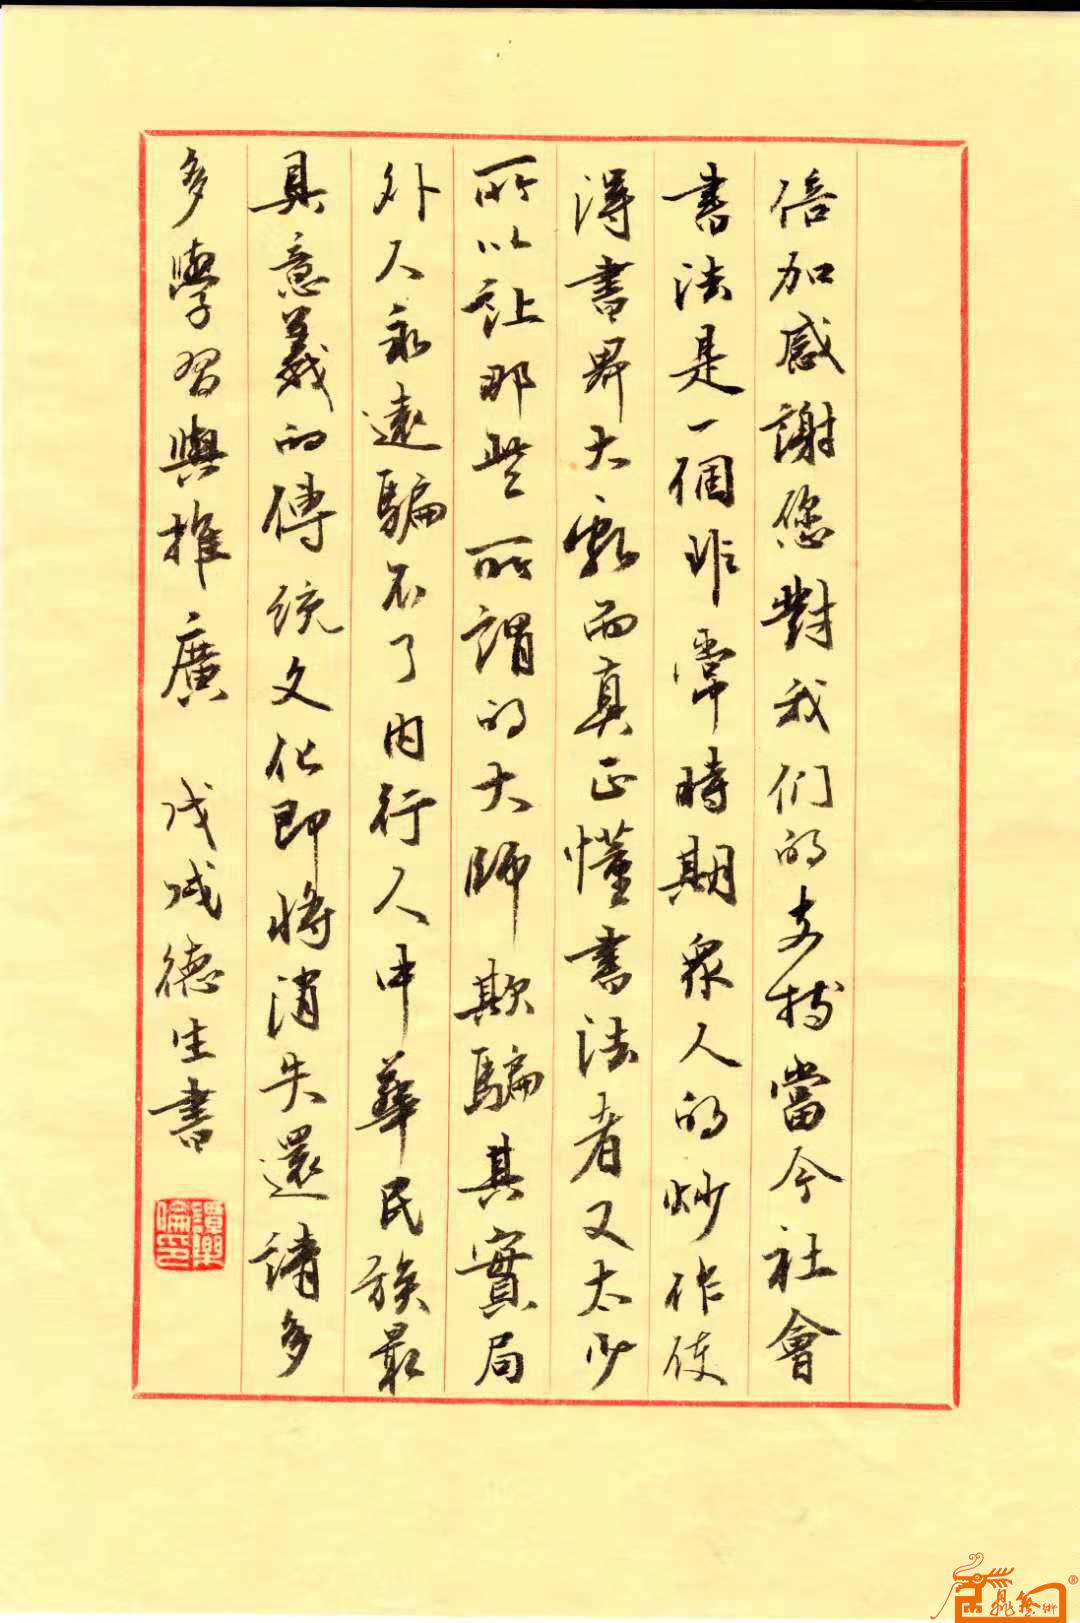 倍加感謝您對我们的支持當今社會
書法是一個非常時期眾人的炒作使
得書界大亂而真正懂書法者又太少
所以让那些所謂的大師欺騙其實局
外人永遠騙不了内行人中華民族最
具意義的傳统文化即将消失還請多
多學習與推廣 戊戌德生書